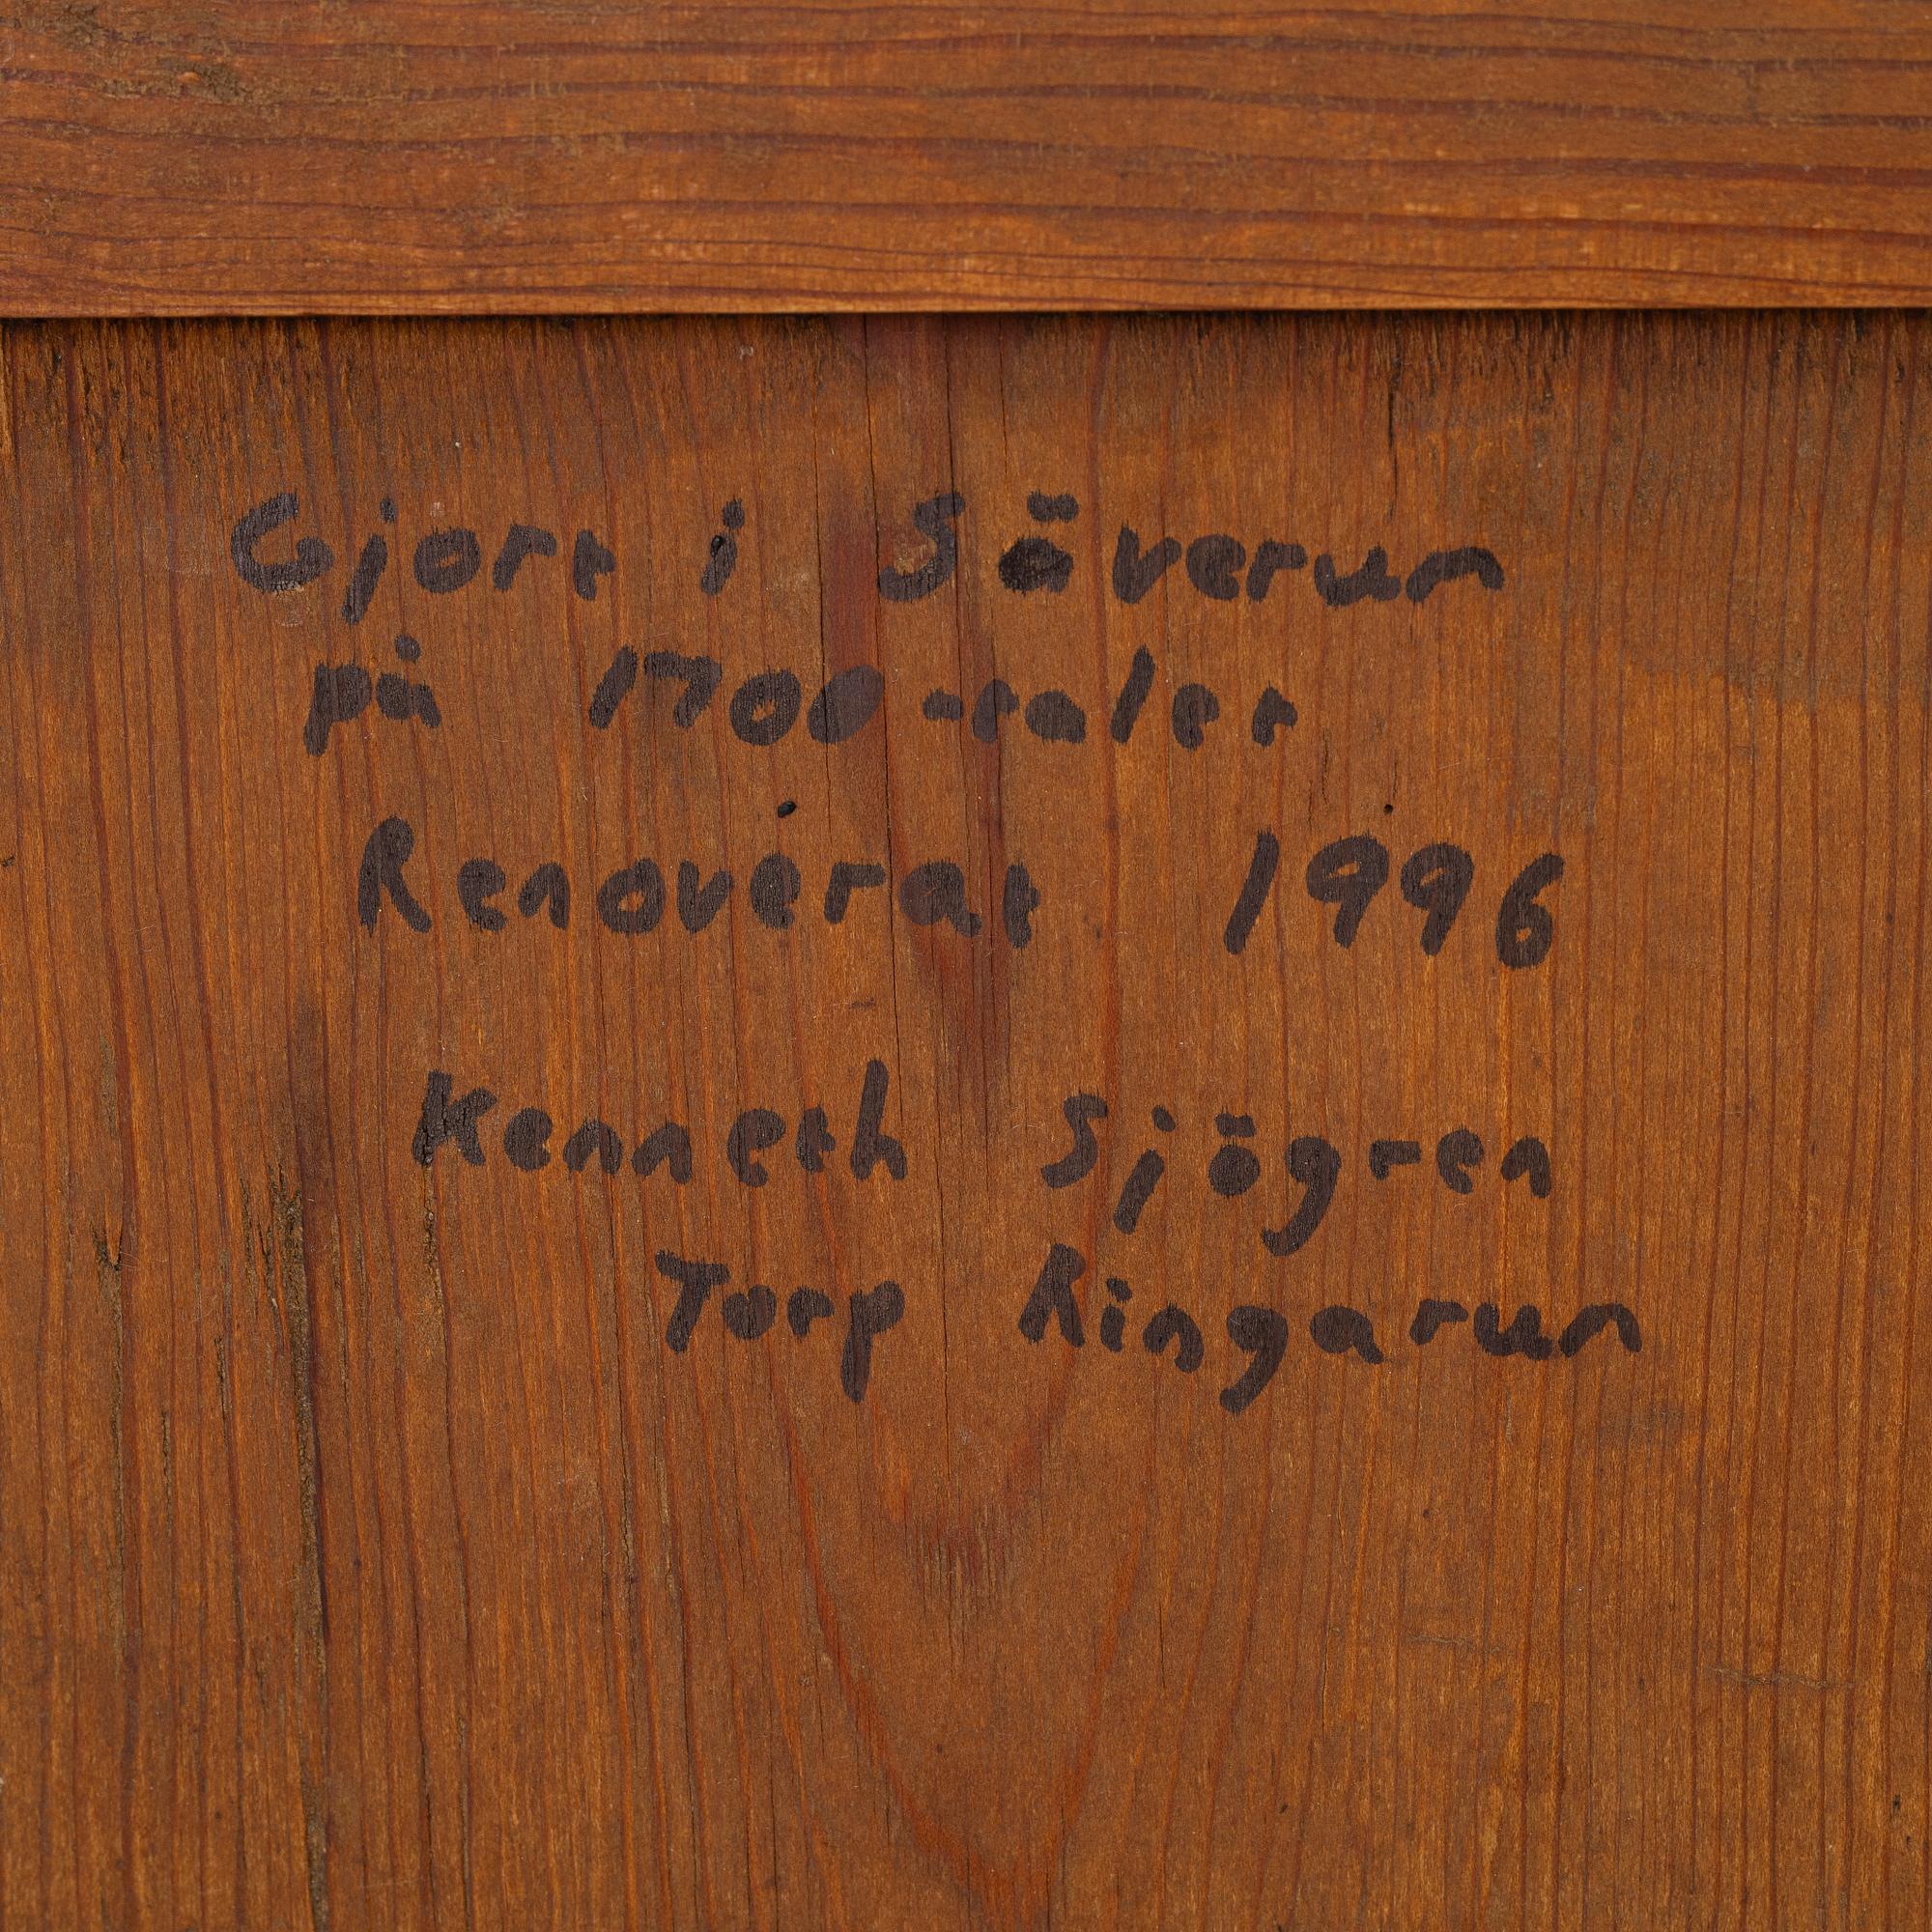 Gjort i Säverum
på 1700-talet
Renoverat 1996
Kenneth Sjögren
Torp Ringarum